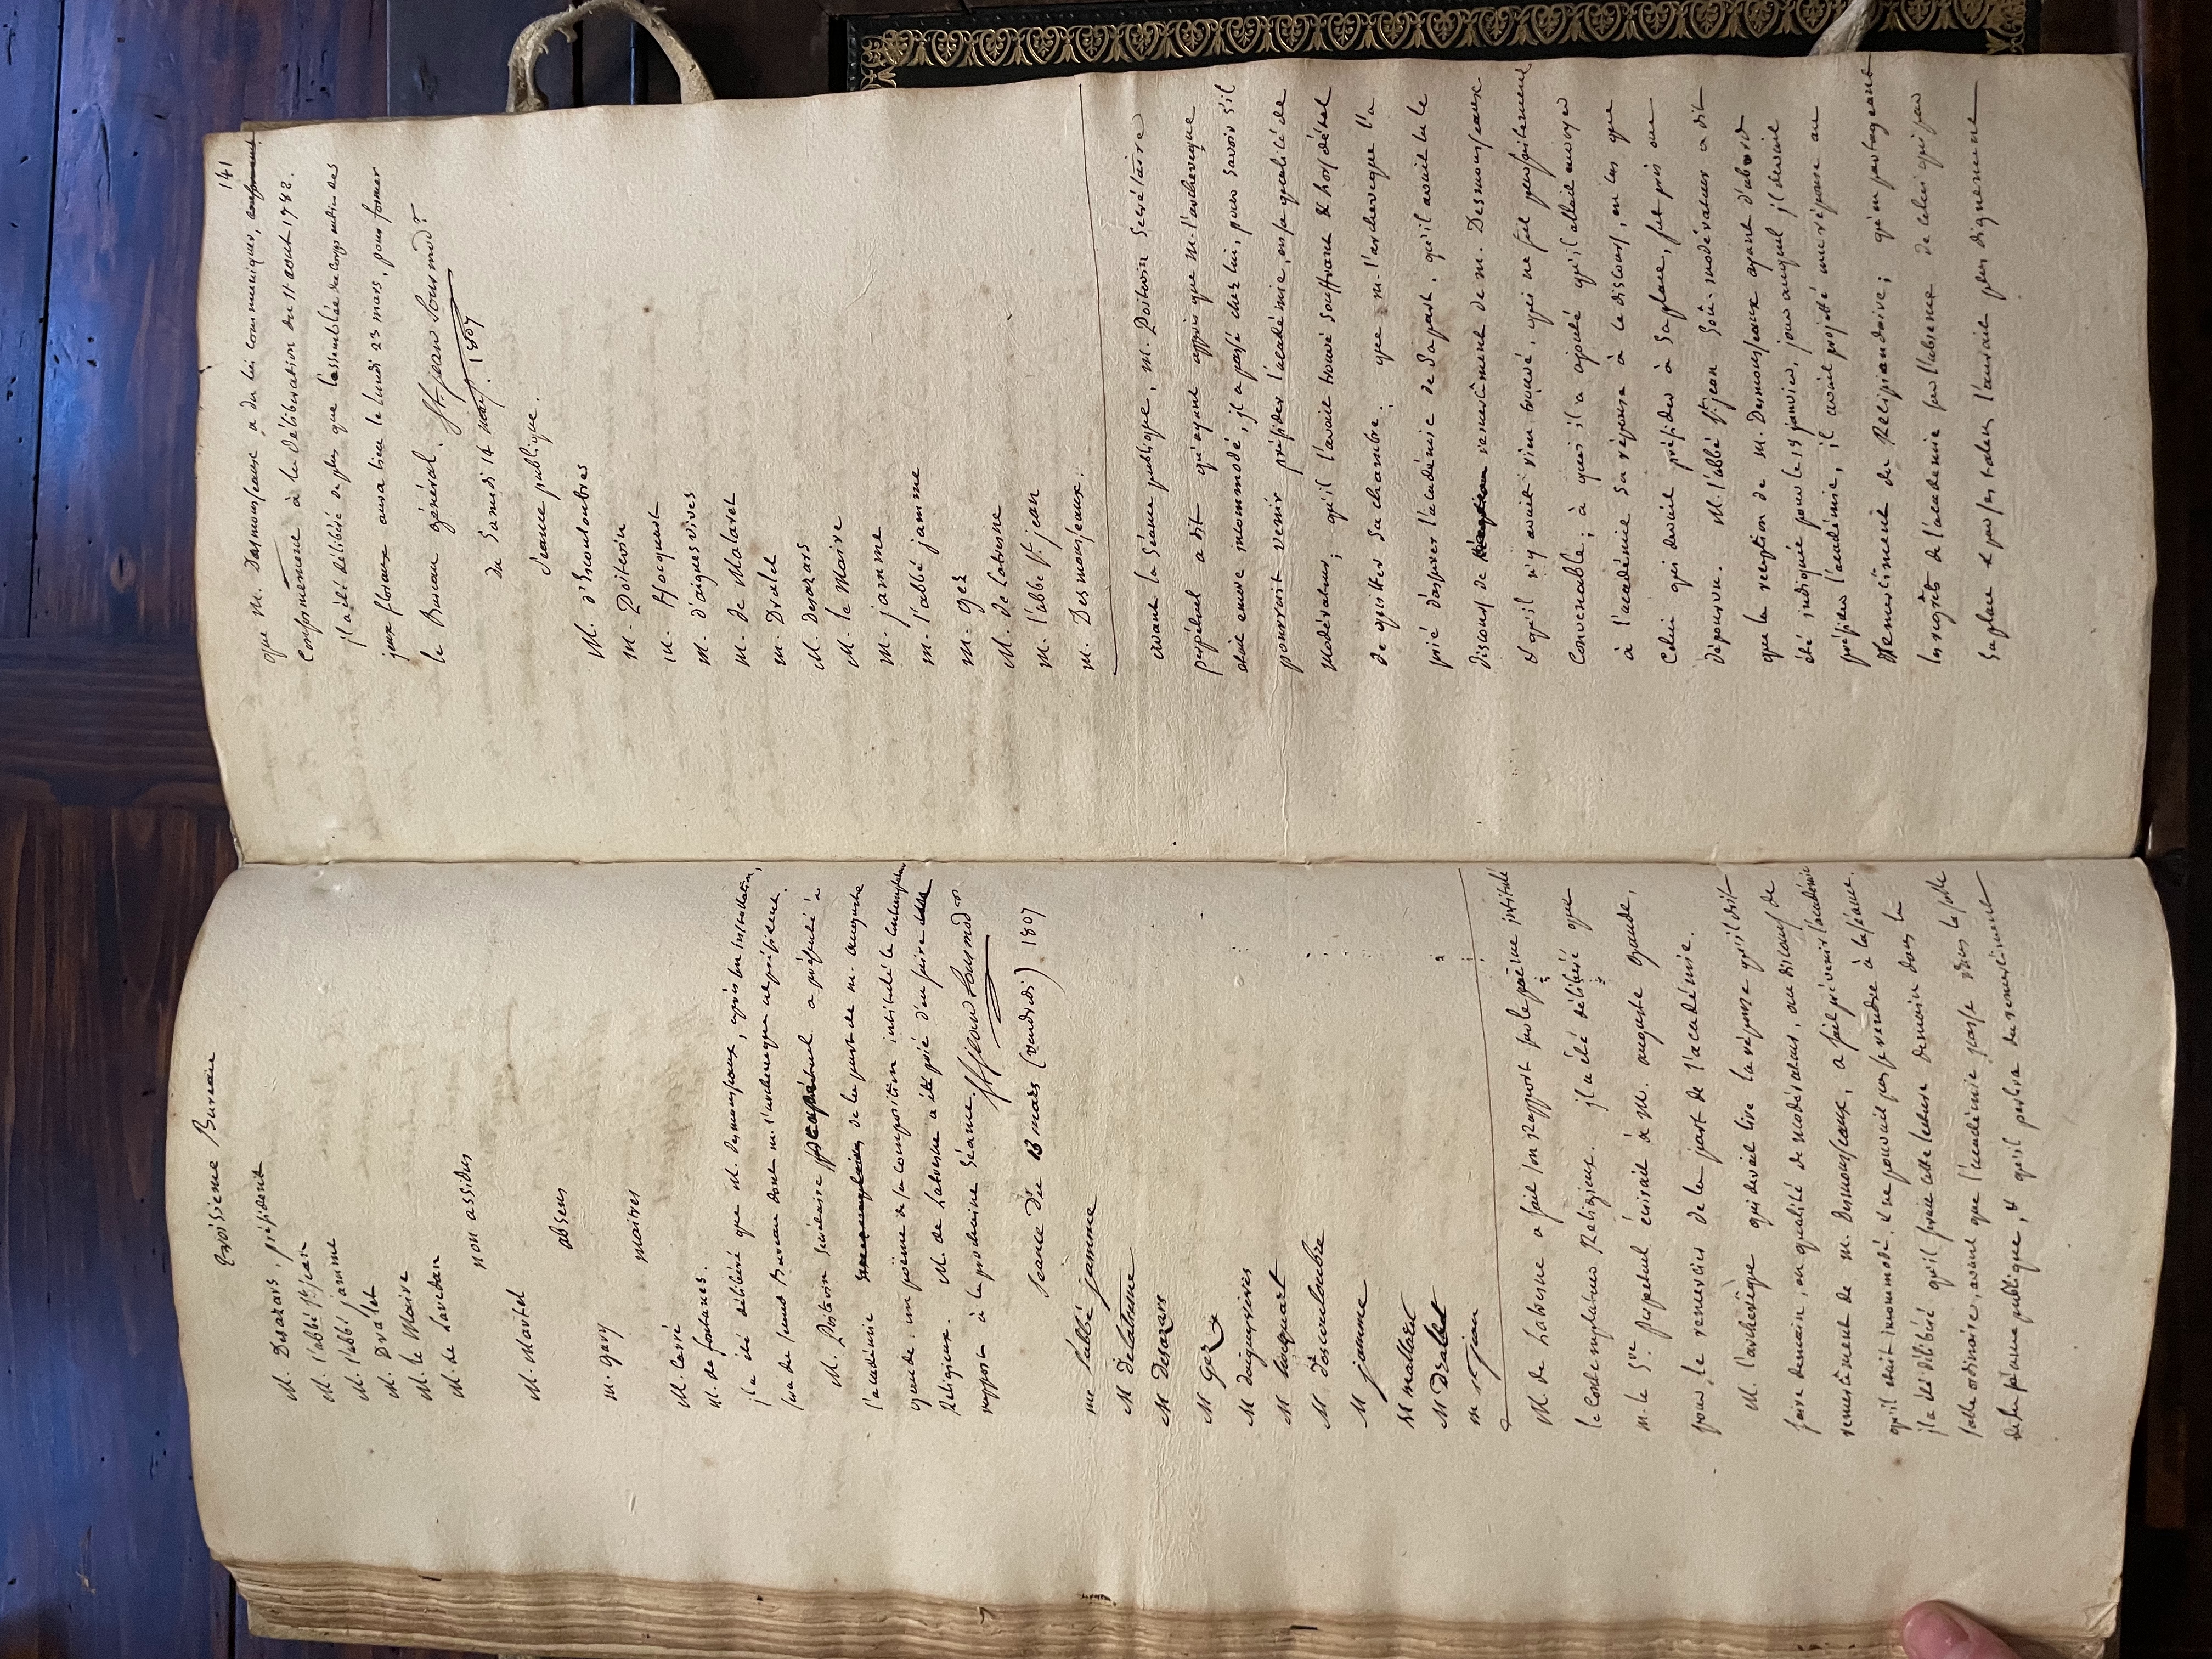 troisieme Bureau
M. Desazars, président
M. l'abbé St. jean
M. l'abbé jamme
M. Dralet
M. le Maire
M. de Lavedan
non assidus
M. Martel
absens
M. gary
maitres
M. Carré
M. de fontanes.
il a été délibéré que M. Desmousseaux, après son installation,
sera du second Bureau dont m. l'archeveque est président.
M. Poitevin Secrétaire perpétuel a présenté à
l'académie de la part de m. auguste
gaude, un poëme de sa composition intitulé le contemplateur
Religieux. M. de Latresne a été prié d'en faire
rapport à la prochaine séance. St jean Sousmodr
Seance Du 13 mars (vendredi) 1807
mr l'abbé jamme
M Delatresne
M Desazars
M Gez
M daiguesvives
M hocquart
M Descouloubre
M jamme
M malaret
M Dralet
m st jean
M. de Latresne a fait son rapport sur le poëme intitulé
le Contemplateur Religieux. il a été délibéré que
m. le Sre. perpétuel écrirait à M. auguste Gaude,
pour le remercier de la part de l'académie.
M. l'archevêque qui devait lire la réponse qu'il doit
faire demain, en qualité de modérateur, au discours de
remerciment de m. Desmousseaux, a fait prévenir l'académie
qu'il était incommodé, & ne pouvait pas se rendre à la séance.
il a été délibéré qu'il ferait cette lecture demain dans la
salle ordinaire, avant que l'académie passe dans la salle
de la séance publique, & qu'il parlera du remerciment
141
que M. Desmousseaux a du lui communiquer,
Conformement à la délibération du 11 aout 1782.
il a été délibéré de plus que l'assemblée du Corps entier des
jeux floraux aura lieu le lundi 23 mars, pour former
le Bureau général. St. jean Sousmodr
du Samedi 14 mars. 1807
séance publique.
M. d'Escouloubres
m. Poitevin
M. Hocquart
m. d'aiguesvives
m. de Malaret
m. Dralet
M. Desazars
M. le Maire
m. jamme
m. l'abbé jamme
m. gez
M. de Latresne
m. l'abbé St. jean
m. Desmousseaux.
avant la séance publique, m. Poitevin Secrétaire
perpétuel a dit qu'ayant appris que M. l'archeveque
était encore incommodé, il a passé chez lui, pour savoir s'il
pourrait venir présider l'académie, en sa qualité de
Modérateur; qu'il l'avait trouvé souffrant & hors d'état
de quitter sa chambre; que m. l'archeveque l'a
prié d'assurer l'académie de sa part, qu'il avait lu le
discours de remercîment de m. Desmousseaux
& qu'il n'y avait rien trouvé, qui ne fût parfaitement
Convenable; à quoi il a ajouté qu'il allait envoyer
à l'académie sa réponse à ce discours, en cas que
Celui qui devait présider à sa place, fut pris au
dépourvu. M. l'abbé St. jean Sous-modérateur a dit
que la reception de m. Desmousseaux ayant d'abord
été indiquée pour le 15 janvier, jour auquel il devait
présider l'académie, il avait projetté une réponse au
Remercîment du Récipiendaire; qu'en partageant
les regrets de l'academie sur l'absence de Celui qui par
sa place & par ses talens l'aurait plus dignement